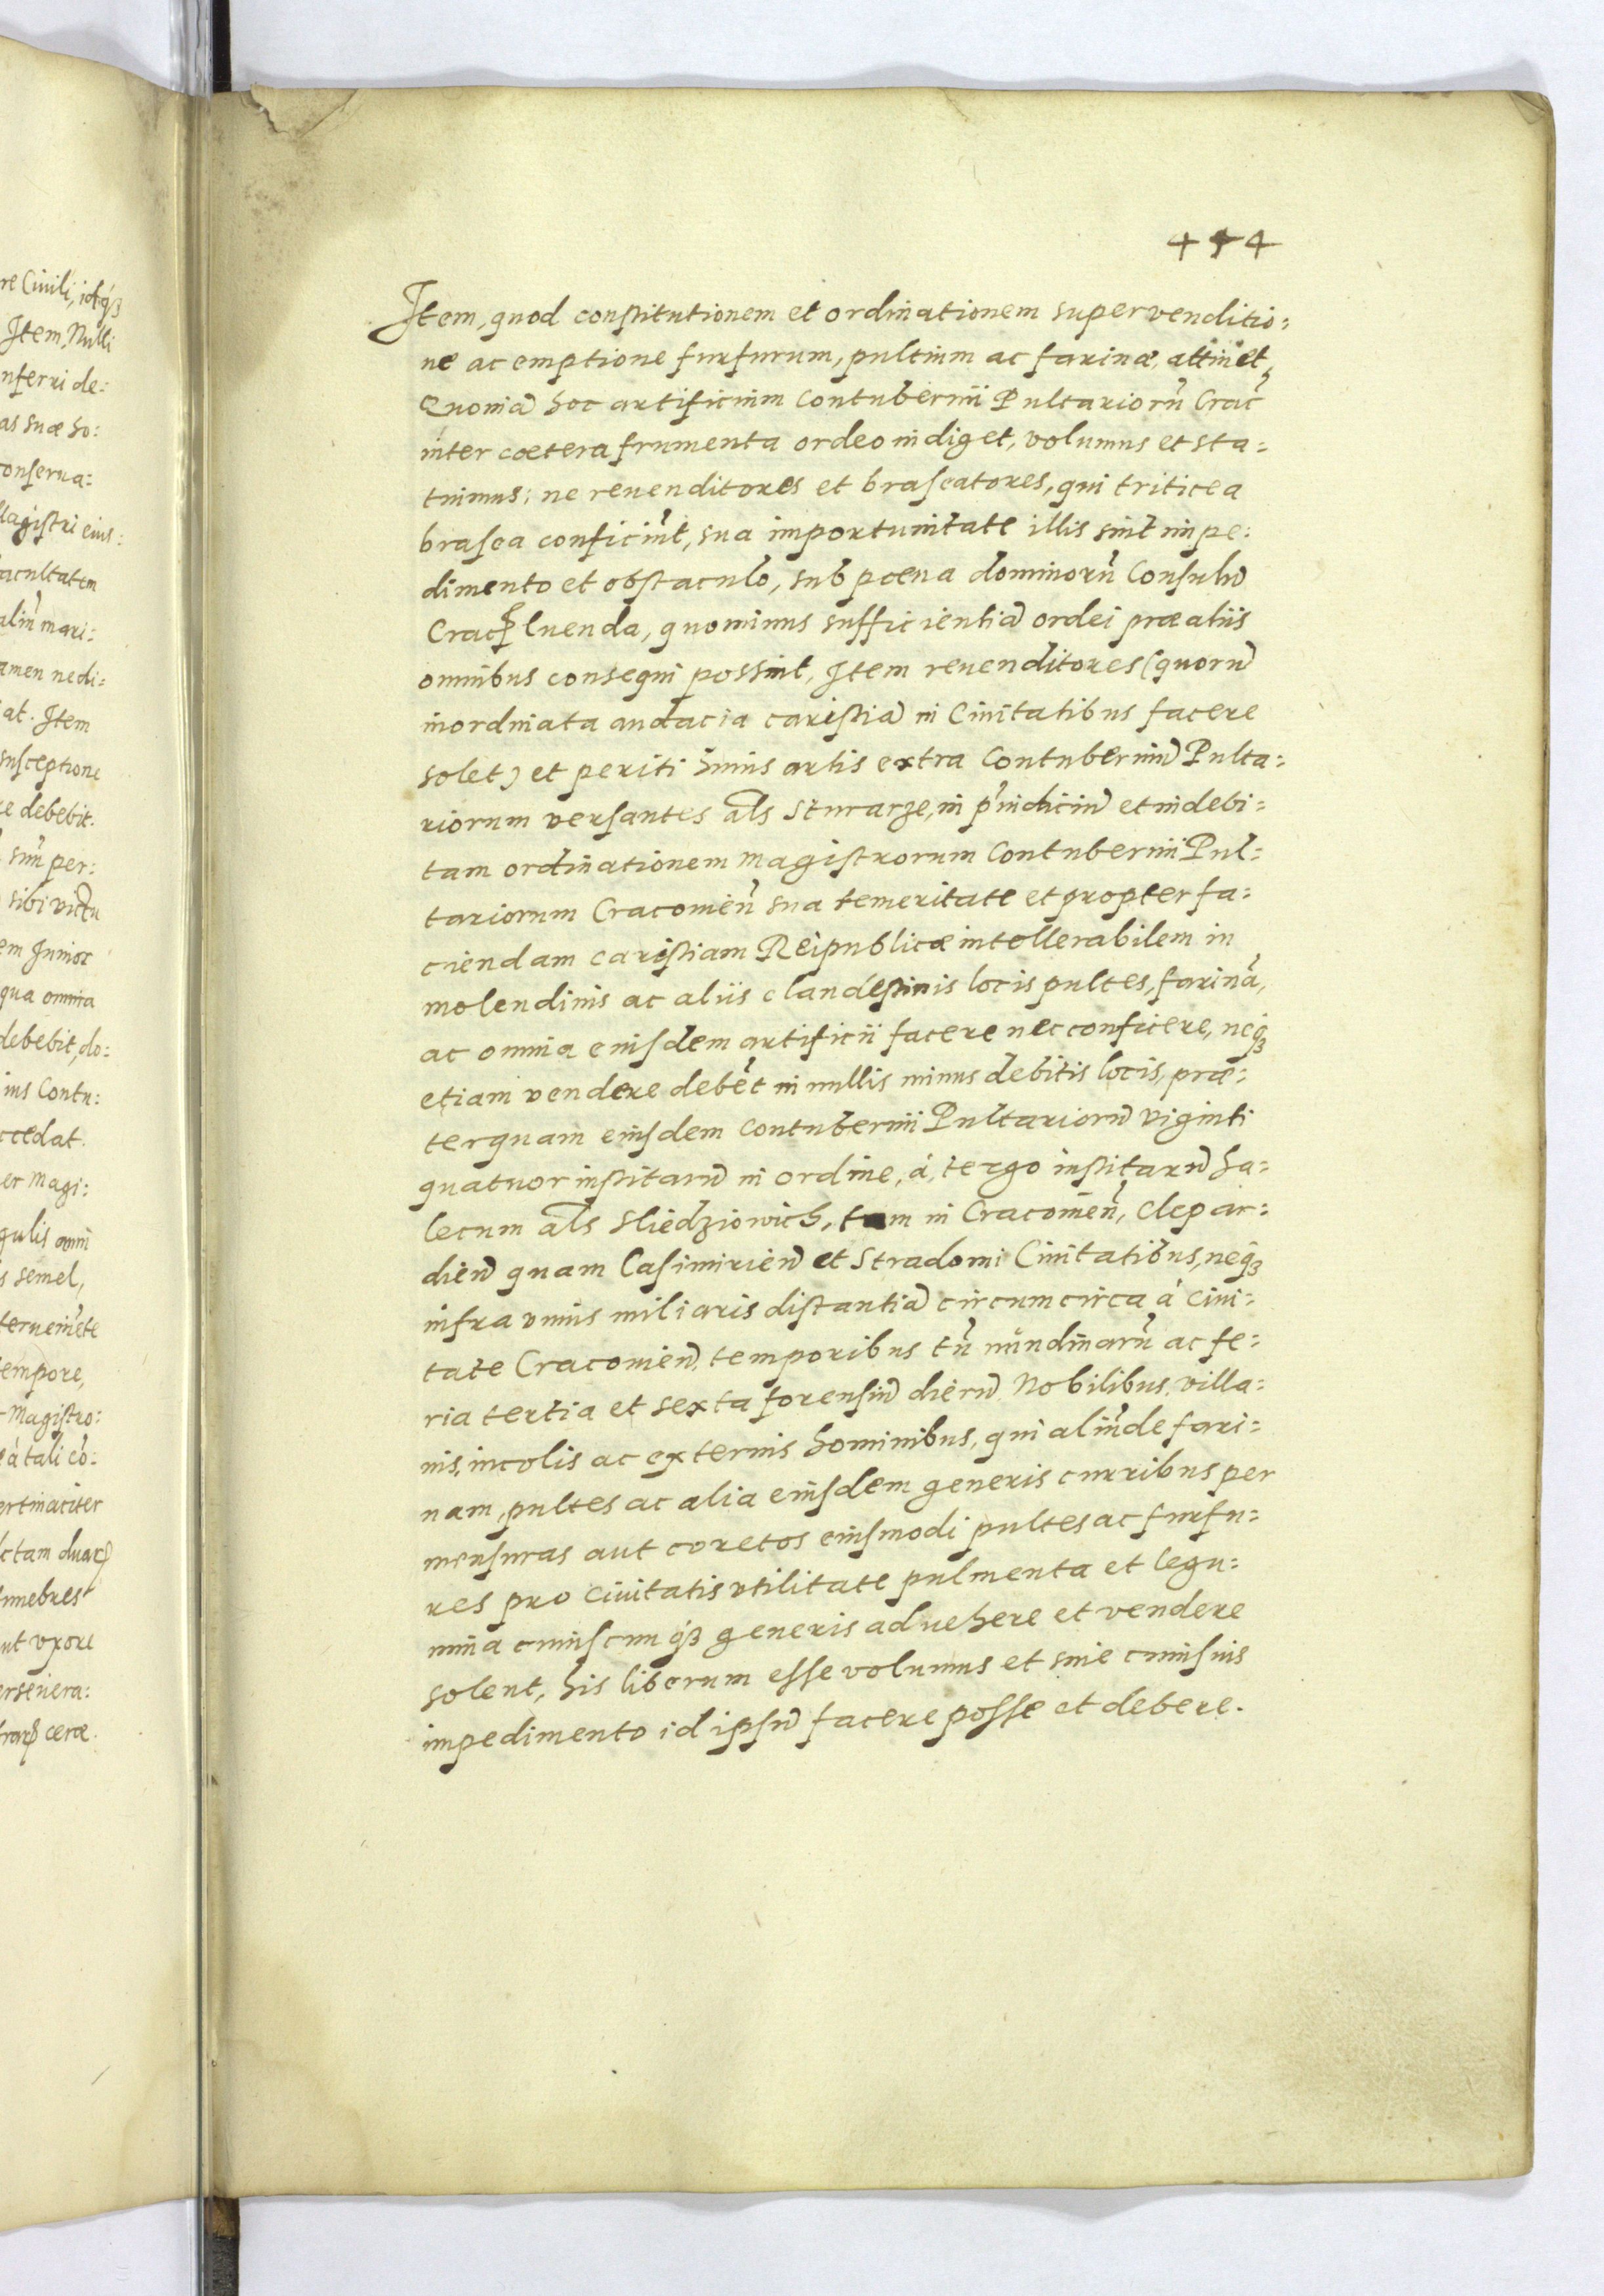 re Ciuili, idq́ꝫ
Item, Nulli
nferri de:
as suæ ho:
conserua:
Magistri eius:
acultatem
aliũ mari:
amen nedi:
at. Item
susceptione
re debebit.
sũ per:
sibi victu
em Junior
qua omnia
debebit, do:
ius Contu:
ccedat.
er Magi:
gulis omni
s semel,
terueniẽte
tempore,
Magistro:
à tali cõ:
ertinaciter
ctam duarꝝ
unebres
ut vxore
erseuera:
ceræ.
414
Item, quod constitutionem et ordinationem super venditio:
ne ac emptione furfurum, pultium ac farinæ, attinet,
Quoniã hoc artificium Contubernii Pultariorũ Crac̃
inter cætera frumenta ordeo indiget, volumus et sta:
tuimus; ne reuenditores et braseatores, qui triticea
brasea conficiũt, sua importunitate illis sint impe:
dimento et obstaculo, sub pœna dominorũ Consulũ
Cracꝝ luenda, quominus sufficientiã ordei præ aliis
omnibus consequi possint, Item reuenditores (quorũ
inordinata audacia caristiã in Ciuitatibus facere
solet) et periti huius artis extra Contuberniũ Pulta:
riorum versantes als Sturarze, in p̃iudiciũ et indebi:
tam ordinationem magistrorum Contubernii Pul:
tariorum Cracouieñ sua temeritate et propter fa:
ciendam caristiam Reipublicæ intollerabilem in
molendinis ac aliis clandestinis locis pultes, farinã,
ac omnia eiusdem artificii facere nec conficere, neqꝫ
etiam vendere debẽt in nullis minus debitis locis, præ:
terquam eiusdem Contubernii Pultariorũ viginti
quatuor institarũ in ordine, à, tergo institarũ ha:
lecum als Sliedziowich, tam in Cracomeñ, Clepar:
dieñ quam Casimirieñ et Stradomi Ciuitatibus, neqꝫ
infra vnius miliaris distantiã circumcirca à ciui:
tate Cracouieñ, temporibus tñ nundinarũ ac fe:
ria tertia et sexta forensiũ dierũ Nobilibus, villa:
nis, incolis ac externis hominibus, qui aliũde fari:
nam, pultes ac alia eiusdem generis curribus per
mensuras aut coretos eiusmodi pultes ac furfu:
res pro ciuitatis vtilitate pulmenta et legu:
mina cuiuscunqꝫ generis aduehere et vendere
solent, his liberum esse volumus et sine cuiusuis
impedimento id ipsũ facere posse et debere.